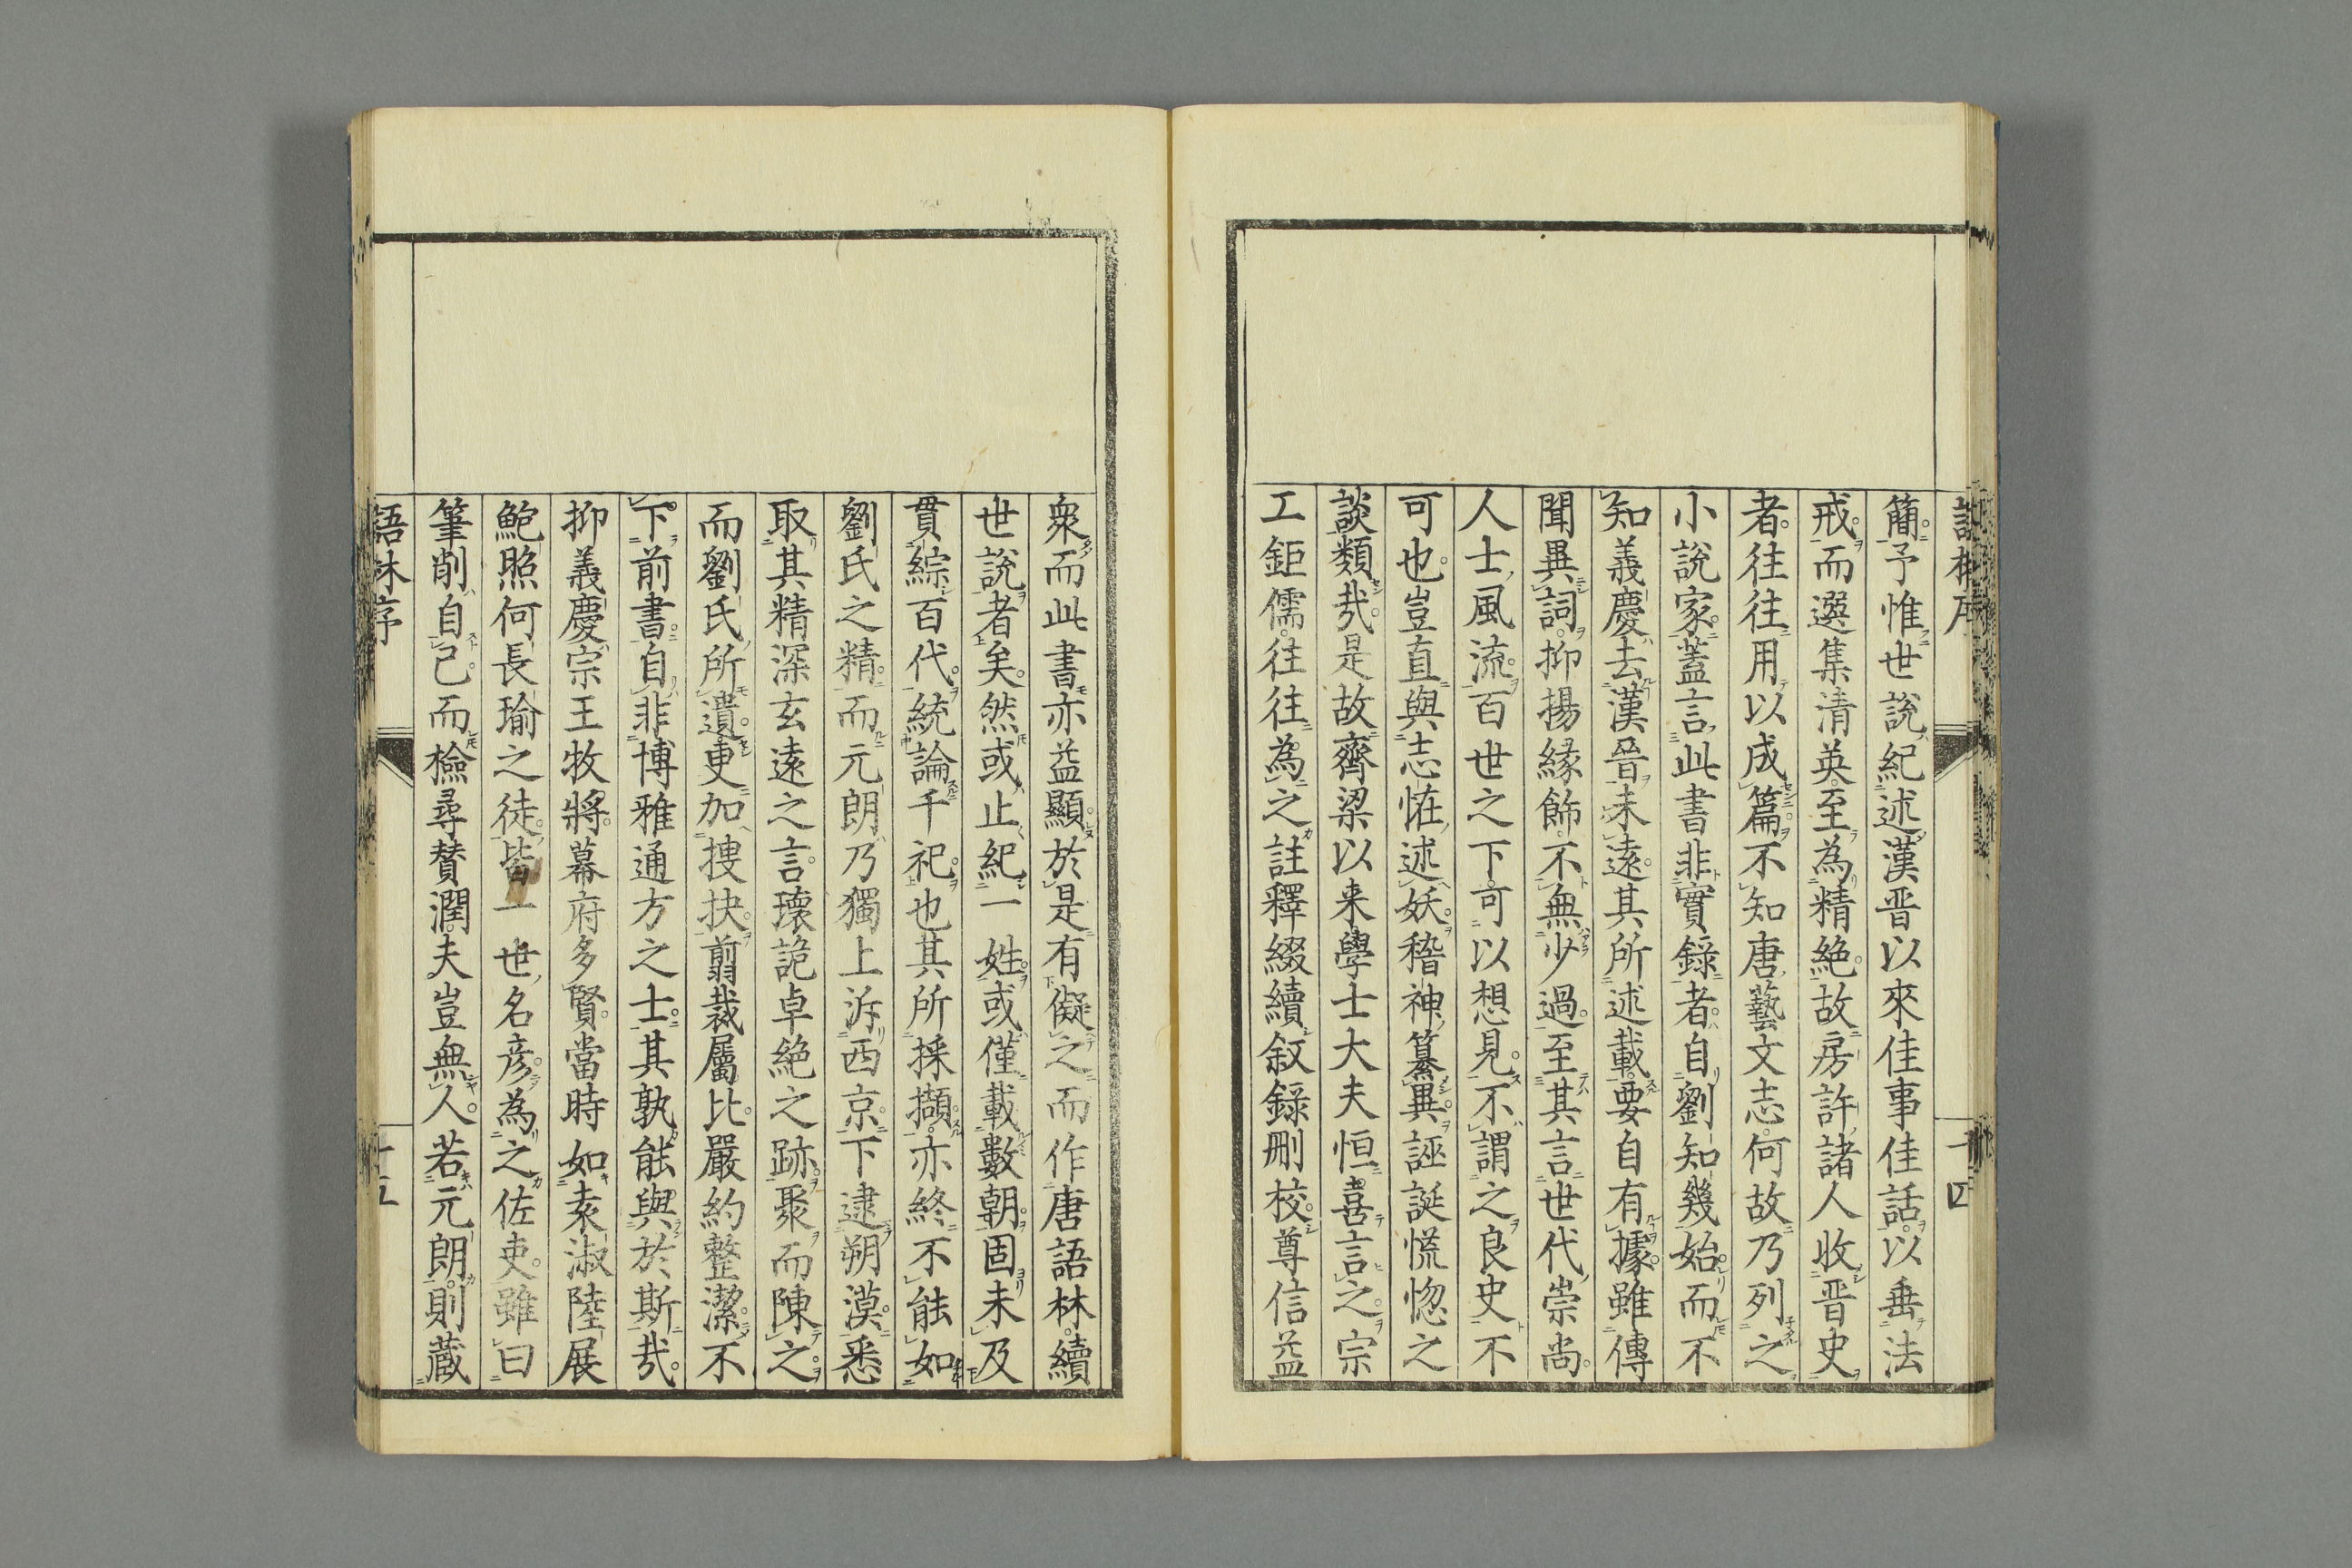 簡予惟世說紀述漢晋以來佳事佳話以垂法
戒而選集清英至為精絶故房許諸人收晋史
者往往用以成篇不知唐藝文志何故乃列之
小說家蓋言此書非實錄者自劉知幾始而不
知義慶去漢晉未遠其所述載要自有據雖傳
聞異詞抑揚縁飾不無少過至其言世代崇尚
人士風流百世之下可以想見不謂之良史不
可也豈直與志恠述妖稽神纂異誣誕慌惚之
談類㢤是故齊梁以来學士大夫恒喜言之宗
工鉅儒往往為之註釋綴續叙録刪校尊信益
衆而此書亦益顯於是有儗之而作唐語林續
世說者矣然或止紀一姓或僅載數朝固未及
貫綜百代統論千祀也其所採擷亦終不能如
劉氏之精而元朗乃獨上泝西京下逮朔漠悉
取其精深玄遠之言瓌詭卓絶之跡聚而陳之
而劉氏所遺更加搜抉翦裁屬比嚴約整潔不
下前書自非博雅通方之士其孰能與於斯㢤
抑義慶宗王牧將幕府多賢當時如袁淑陸展
鮑照何長瑜之徒皆一世名彦為之佐吏雖曰
筆削自己而檢尋賛潤夫豈無人若元朗則藏
語林序
十五